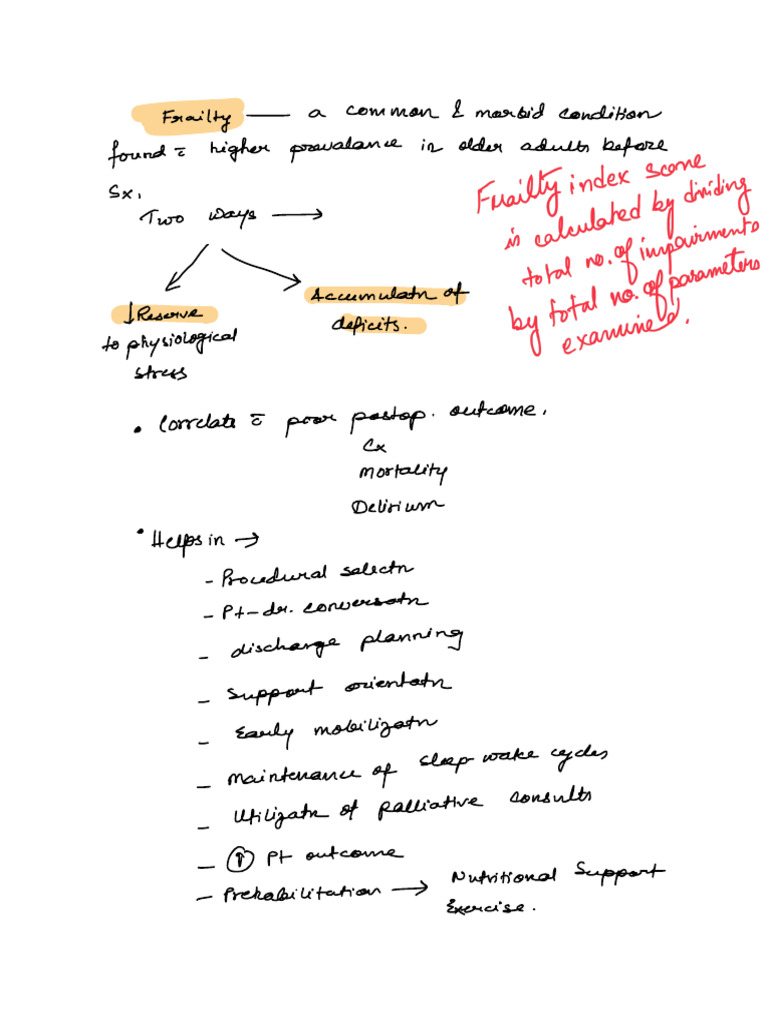 Frailty — a common & morbid condition
found c̄ higher prevalance in older adults before
Sx.
Two ways →
↓ Reserve
to physiological
stress
Accumulatn of
deficits.
Frailty index score
is calculated by dividing
total no. of impairments
by total no. of parameters
examined.
• Correlate c̄ poor postop. outcome.
Cx
Mortality
Delirium
• Helps in →
- Procedural selectn
- Pt-dr. conversatn
- discharge planning
- Support orientatn
- Early mobilizatn
- Maintenance of sleep wake cycles
- Utilizatn of palliative consults
- ↑ Pt outcome
- Prehabilitation → Nutritional Support
Exercise.